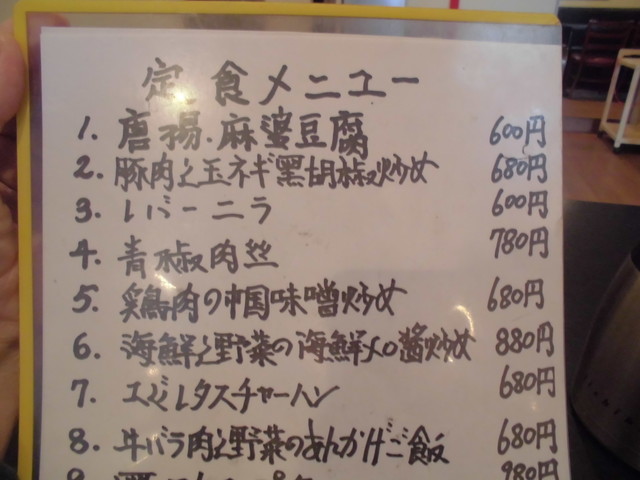 定食メニュー
1. 唐揚.麻婆豆腐 600円
2. 豚肉と玉ネギ黒胡椒炒め 680円
3. レバーニラ 600円
4. 青椒肉丝 780円
5. 鶏肉の中国味噌炒め 680円
6. 海鮮と野菜の海鮮XO醬炒め 880円
7. エビレタスチャーハン 680円
8. 牛バラ肉と野菜のあんかけご飯 680円
980円